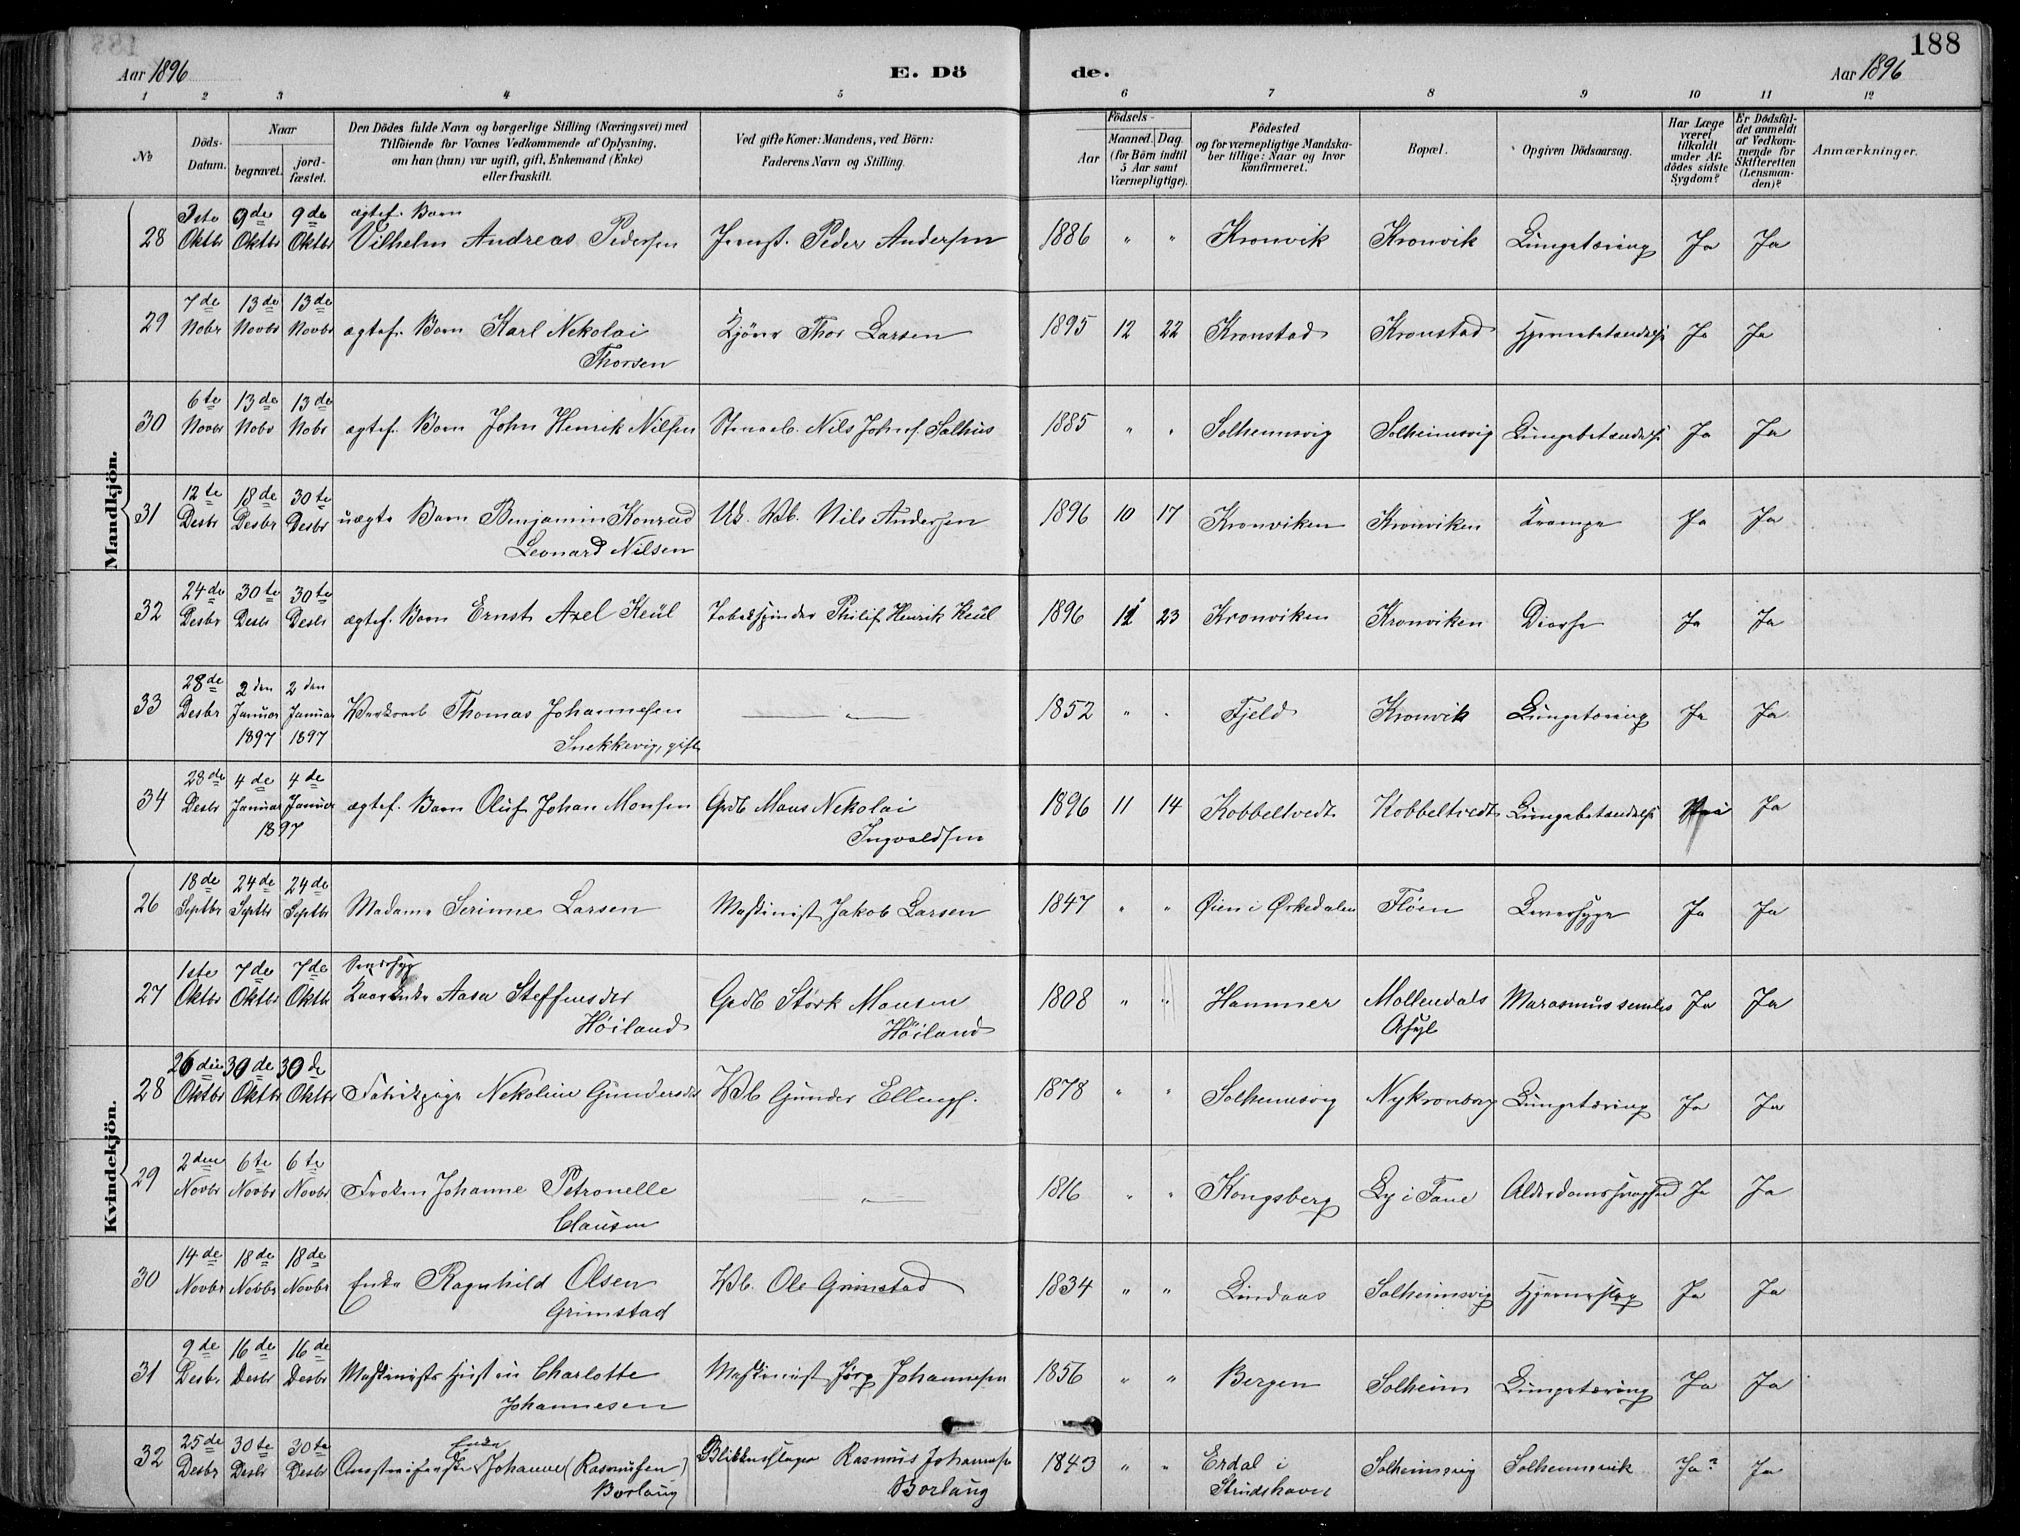 188
Aar 1896
E. Dö
de.
Aar 1896
1 2 3 4 5 6 7 8 9 10 11 12
No
Döds-Datum.
Naar
begravet.
jord-fæstet.
Den Dödes fulde Navn og borgerlige Stilling (Næringsvei) med
Tilföiende for Voxnes Vedkommende af Oplysning,
om han (hun) var ugift, gift, Enkemand (Enke)
eller fraskilt.
Ved gifte Koner: Mandens, ved Börn:
Faderens Navn og Stilling.
Födsels-
Aar
Maaned. Dag.
(for Börn indtil
5 Aar samt
Værnepligtige).
Födested
og for værnepligtige Mandska-
ber tillige: Naar og hvor
konfirmeret.
Bopæl.
Opgiven Dödsaarsag.
Har Læge
været
tilkaldt
under Af-
dödes sidste
Sygdom?
Er Dödsfal-
det anmeldt
af Vedkom-
mende for
Skifteretten
(Lensman-
den)?
Anmærkninger.
Mandkjön.
28 Oktbr 9de Oktbr 9de Oktbr ægtef. Barn
Vilhelm Andreas Pedersen Peder Andersen 1886 " " Kronvik Kronvik Lungetæring Ja Ja
29 7de Nobr 13de Novbr 13de Novbr ægtef. Barn Karl Nekolai
Thorsen Thor Larsen 1895 12 22 Kronstad Kronstad Hjernebetændelse Ja Ja
30 6te Novbr 13de Nobr 13de Nobr ægtef. Barn John Henrik Nilsen Nils Johns. Salhus 1885 " " Solheimsvig Solheimsvig Lungebetændelse Ja Ja
31 12te Desbr 18de Desbr 30te Desbr uægte Barn Benjamin Konrad
Leonard Nilsen Nils Andersen 1896 10 17 Kronviken Kronviken Krampe Ja Ja
32 24de Desbr 30te Desbr 30te Desbr ægtef. Barn Ernst Axel Keül Tobakspinder Philip Henrik Keül 1896 23 Kronviken Kronviken Ja Ja
33 28de Desbr 2den Januar 1897 2den Januar 1897 Thomas Johannesen
Snekkevig, gift " 1852 " " Fjeld Kronvik Lungetæring Ja Ja
34 28de Desbr 4de Januar 4de Januar
1897 ægtef. Barn Oluf Johan Monsen Grdb Mons Nekolai
Ingvaldsen 1896 11 14 Kobbeltvedt Kobbeltvedt Lungebetændelse Ja
Kvindekjön.
26 18de Septbr 24de Septbr 24de Septbr Madame Serinne Larsen Maskinist Jakob Larsen 1847 " " Øien i Ørkedalen Fløen Leversyge Ja Ja
27 1ste Oktbr 7de Oktbr 7de Oktbr Aasa Steffensdtr
Höiland Grdb Störk Monsen
Höiland 1808 " " Hammer Mollendals
Asyl Marasmus senilis Ja Ja
28 Oktbr 30de Oktbr 30de Oktbr Fabrikpige Nekoline Gundersdtr Wb Gunder Ellings. 1878 " " Solheimsvig Nykronborg Lungetæring Ja Ja
29 2den Novbr 6te Novbr 6te Novbr Froken Johanne Petronelle
Clausen " 1816 " " Kongsberg i Fane Ja Ja
30 14de Novbr 18de Novbr 18de Novbr Enke Ragnhild Olsen
Grimstad Wb. Ole Grimstad 1834 " " Lindaas Solheimsvig Hjerneslag Ja Ja
31 9de Desbr 16de Desbr 16de Desbr Maskinists Hustru Charlotte
Johannesen Maskinist Jørg Johannesen 1856 " " Bergen Solheim Lungetæring Ja Ja
32 25de Desbr 30te Desbr 30te Desbr Enke
Johanne (Rasmusen)
Borlaug Blikkenslager Rasmus Johannes
Borlaug 1843 " " Erdal i
Strudshavn Solheimsvig Solheimsvik Ja? Ja